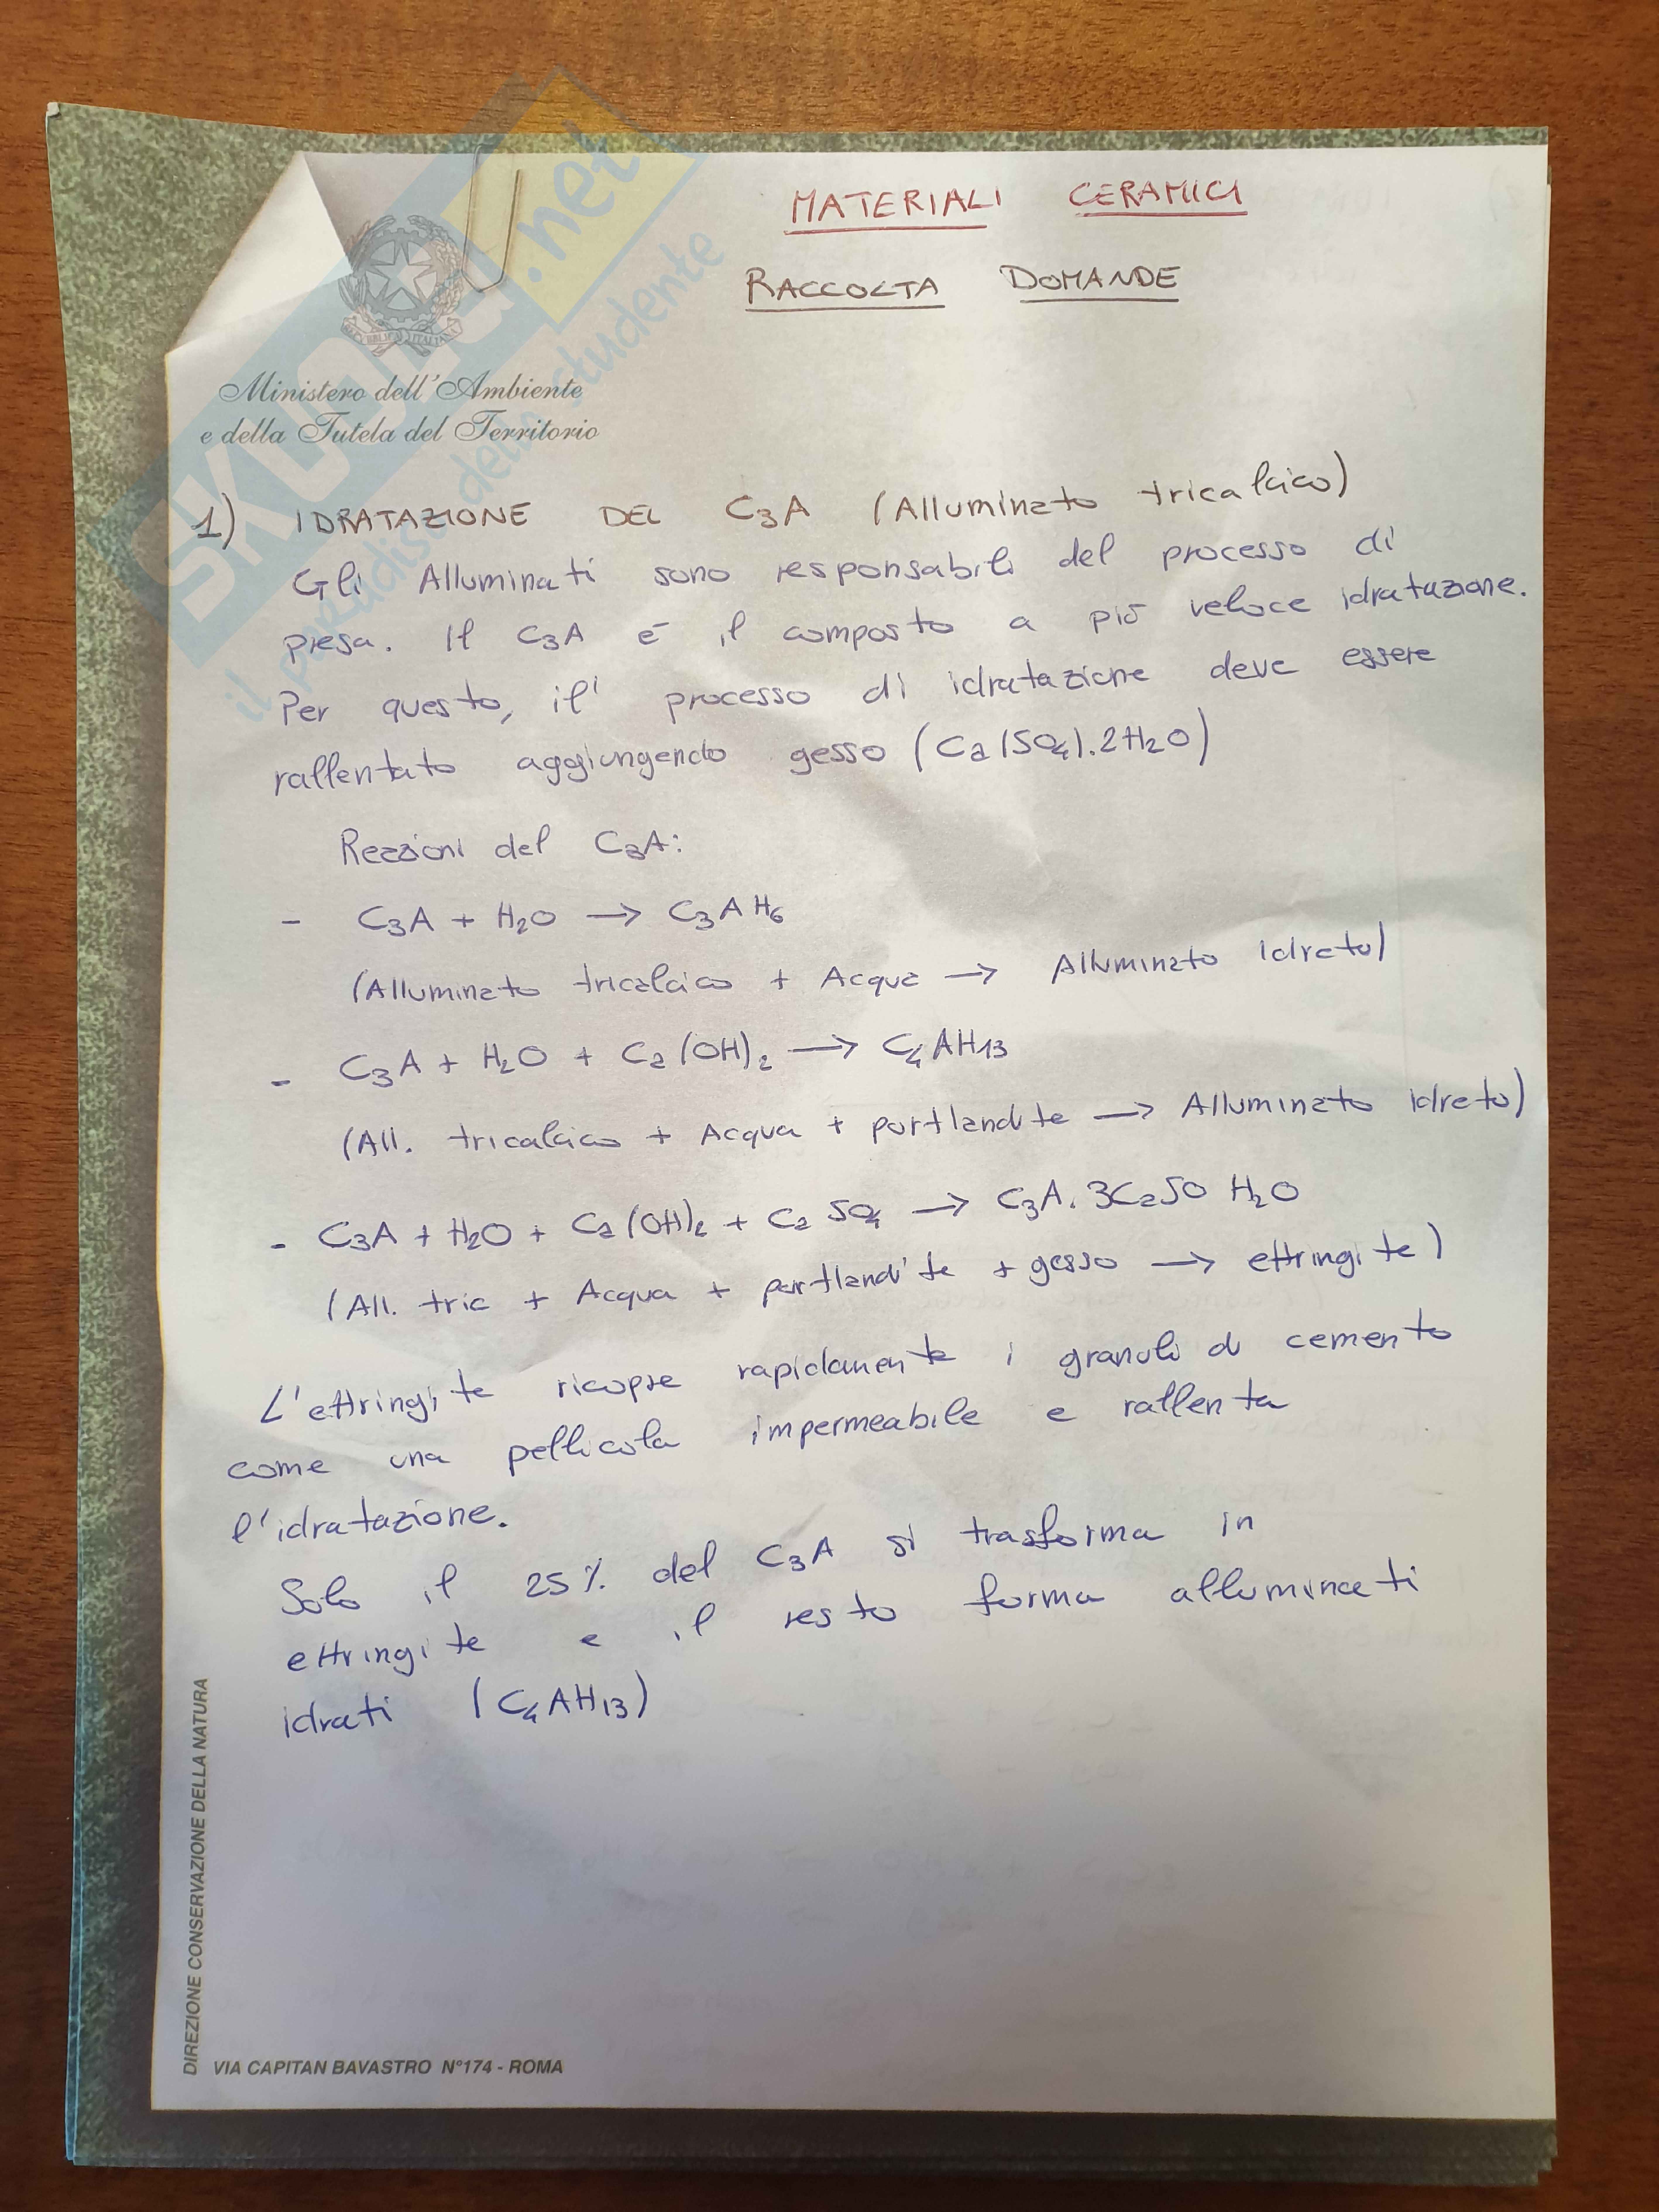 MATERIALI CERAMICI
RACCOLTA DOMANDE
SKUOLA.net
il paradiso dello studente
REPUBBLICA ITALIANA
Ministero dell'Ambiente
e della Tutela del Territorio
1) IDRATAZIONE DEL C3A (Alluminato tricalcico)
Gli Alluminati sono responsabili del processo di
presa. Il C3A è il composto a più veloce idratazione.
Per questo, il processo di idratazione deve essere
rallentato aggiungendo gesso (Ca(SO4).2H2O)
Reazioni del C3A:
- C3A + H2O → C3AH6
(Alluminato tricalcico + Acqua → Alluminato idrato)
- C3A + H2O + Ca(OH)2 → C4AH13
(All. tricalcico + Acqua + portlandite → Alluminato idrato)
- C3A + H2O + Ca(OH)2 + CaSO4 → C3A.3CaSO H2O
(All. tric + Acqua + portlandite + gesso → ettringite)
L'ettringite ricopre rapidamente i granuli di cemento
come una pellicola impermeabile e rallenta
l'idratazione.
Solo il 25% del C3A si trasforma in
ettringite e il resto forma alluminati
idrati (C4AH13)
DIREZIONE CONSERVAZIONE DELLA NATURA
VIA CAPITAN BAVASTRO N°174 - ROMA